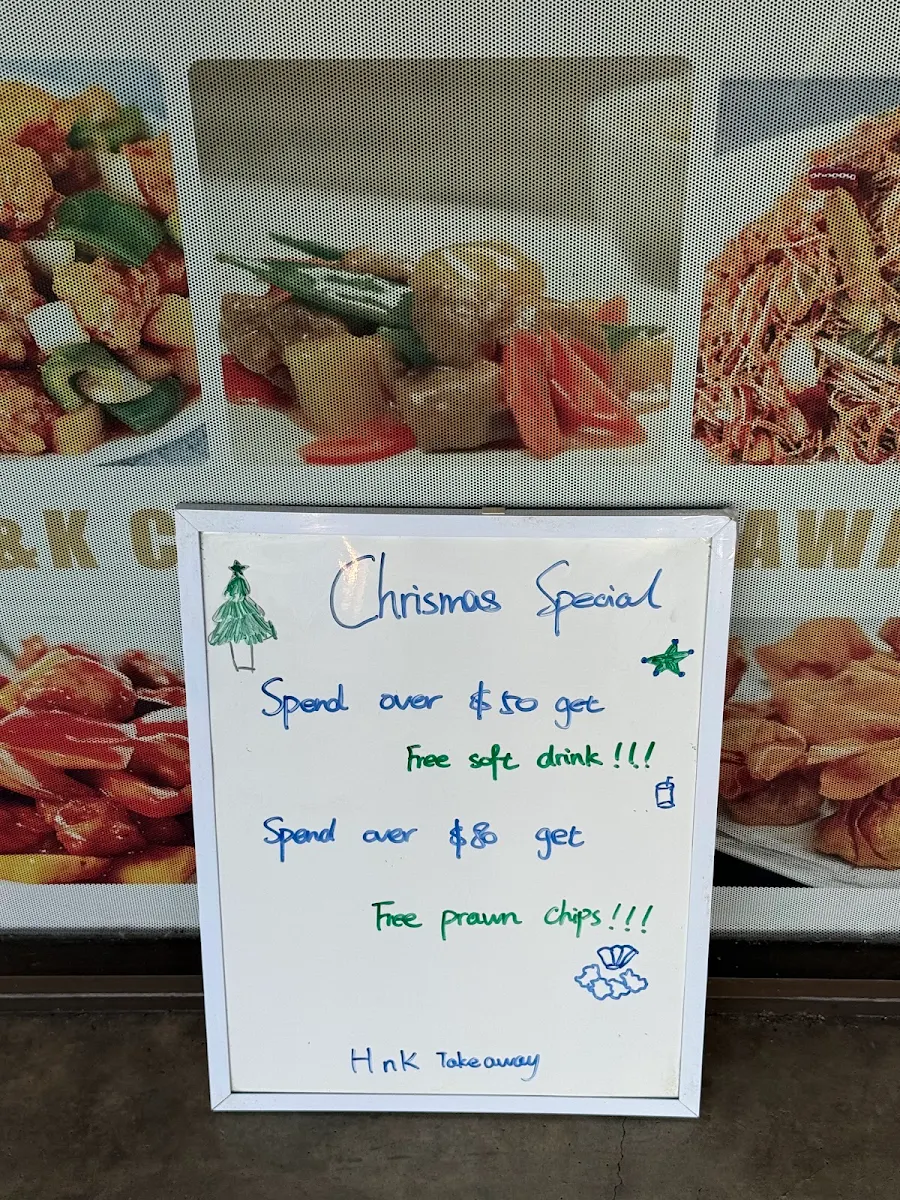 &K C
AWA
Chrismas Special
Spend over $50 get
Free soft drink!!!
Spend over $80 get
Free prawn chips!!!
HnK Takeaway